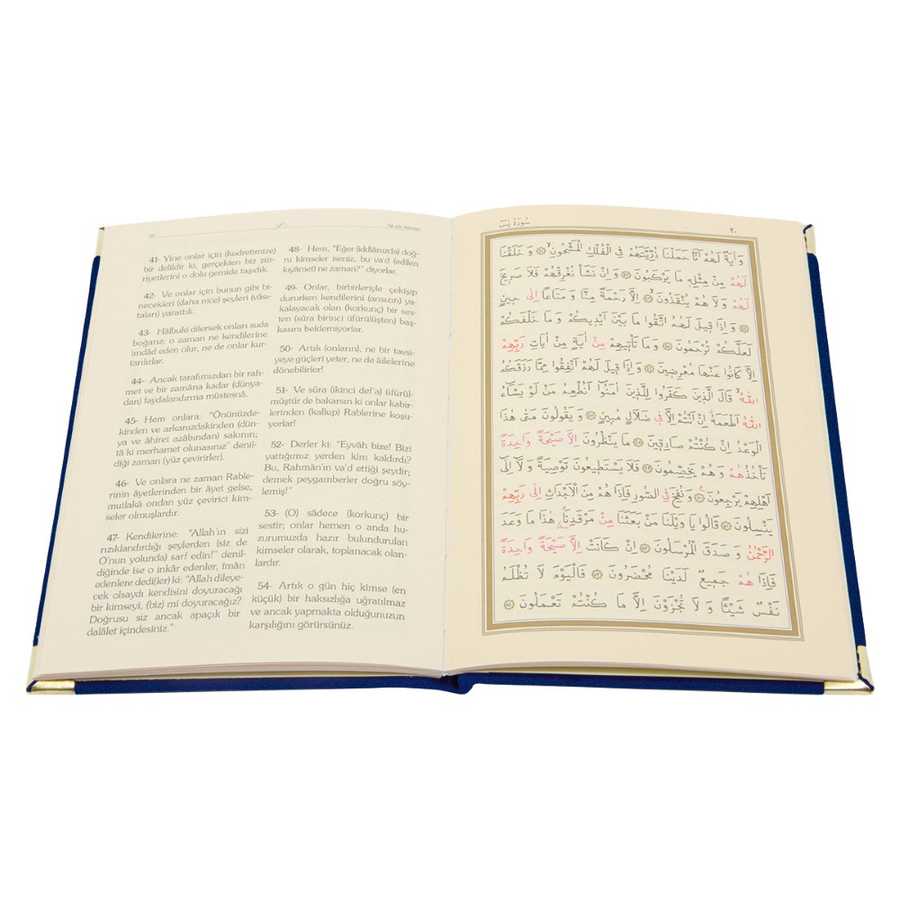 41- Yine onlar için (kudretimize)
bir delildir ki, gerçekten biz zür-
riyetlerini o dolu gemide taşıdık.
42- Ve onlar için bunun gibi bi-
necekleri (daha nice) şeyleri (vâsı-
taları) yarattık.
43- Hâlbuki dilersek onları suda
boğarız; o zaman ne kendilerine
imdâd eden olur, ne de onlar kur-
tarılırlar.
44- Ancak tarafımızdan bir rah-
met ve bir zamâna kadar (dünya-
dan) faydalandırma müstesnâ.
45- Hem onlara: "Önünüzde-
kinden ve arkanızdakinden (dün-
ya ve âhiret azâbından) sakının;
tâ ki merhamet olunasınız" denil-
diği zaman (yüz çevirirler).
46- Ve onlara ne zaman Rable-
rinin âyetlerinden bir âyet gelse,
mutlakâ ondan yüz çevirici kim-
seler olmuşlardır.
47- Kendilerine: "Allah'ın sizi
rızıklandırdığı şeylerden (siz de
O'nun yolunda) sarf edin!" denil-
diğinde ise o inkâr edenler, îmân
edenlere dedi(ler) ki: "Allah dileye-
cek olsaydı kendisini doyuracağı
bir kimseyi, (biz) mi doyuracağız?
Doğrusu siz ancak apaçık bir
dalâlet içindesiniz."
48- Hem, "Eğer (iddiânızda) doğ-
ru kimseler iseniz, bu va'd (edilen
kıyâmet) ne zaman?" diyorlar.
49- Onlar, birbirleriyle çekişip
dururken kendilerini (ansızın) ya-
kalayacak olan (korkunç) bir ses-
ten (sûra birinci üfürülüşten) baş-
kasını beklemiyorlar.
50- Artık (onların), ne bir tavsi-
yeye güçleri yeter, ne de âilelerine
dönebilirler!
51- Ve sûra (ikinci def'a) üfürül-
müştür de bakarsın ki onlar kabir-
lerinden (kalkıp) Rablerine koşu-
yorlar!
52- Derler ki: "Eyvâh bize! Bizi
yattığımız yerden kim kaldırdı?
Bu, Rahmân'ın va'd ettiği şeydir;
demek peygamberler doğru söy-
lemiş!"
53- (O) sâdece (korkunç) bir
sestir; onlar hemen o anda hu-
zurumuzda hazır bulundurulan
kimseler olarak, toplanacak olan-
lardır.
54- Artık o gün hiç kimse (en
küçük) bir haksızlığa uğratılmaz
ve ancak yapmakta olduğunuzun
karşılığını görürsünüz.
سُورَةُ يٰسٓ ٢٠
وَاٰيَةٌ لَهُمْ اَنَّا حَمَلْنَا ذُرِّيَّتَهُمْ فِي الْفُلْكِ الْمَشْحُونِ ﴿٤١﴾ وَخَلَقْنَا
لَهُمْ مِنْ مِثْلِهِ مَا يَرْكَبُونَ ﴿٤٢﴾ وَاِنْ نَشَأْ نُغْرِقْهُمْ فَلَا صَرِيخَ
لَهُمْ وَلَا هُمْ يُنْقَذُونَ ﴿٤٣﴾ اِلَّا رَحْمَةً مِنَّا وَمَتَاعًا اِلٰى حِينٍ
﴿٤٤﴾ وَاِذَا قِيلَ لَهُمُ اتَّقُوا مَا بَيْنَ اَيْدِيكُمْ وَمَا خَلْفَكُمْ
لَعَلَّكُمْ تُرْحَمُونَ ﴿٤٥﴾ وَمَا تَأْتِيهِمْ مِنْ اٰيَةٍ مِنْ اٰيَاتِ رَبِّهِمْ
اِلَّا كَانُوا عَنْهَا مُعْرِضِينَ ﴿٤٦﴾ وَاِذَا قِيلَ لَهُمْ اَنْفِقُوا مِمَّا رَزَقَكُمُ
اللّٰهُ قَالَ الَّذِينَ كَفَرُوا لِلَّذِينَ اٰمَنُوا اَنُطْعِمُ مَنْ لَوْ يَشَاءُ
اللّٰهُ اَطْعَمَهُ اِنْ اَنْتُمْ اِلَّا فِي ضَلَالٍ مُبِينٍ ﴿٤٧﴾ وَيَقُولُونَ مَتٰى هٰذَا
الْوَعْدُ اِنْ كُنْتُمْ صَادِقِينَ ﴿٤٨﴾ مَا يَنْظُرُونَ اِلَّا صَيْحَةً وَاحِدَةً
تَأْخُذُهُمْ وَهُمْ يَخِصِّمُونَ ﴿٤٩﴾ فَلَا يَسْتَطِيعُونَ تَوْصِيَةً وَلَا اِلٰى
اَهْلِهِمْ يَرْجِعُونَ ﴿٥٠﴾ وَنُفِخَ فِي الصُّورِ فَاِذَا هُمْ مِنَ الْاَجْدَاثِ اِلٰى رَبِّهِمْ
يَنْسِلُونَ ﴿٥١﴾ قَالُوا يَا وَيْلَنَا مَنْ بَعَثَنَا مِنْ مَرْقَدِنَا هٰذَا مَا وَعَدَ
الرَّحْمٰنُ وَصَدَقَ الْمُرْسَلُونَ ﴿٥٢﴾ اِنْ كَانَتْ اِلَّا صَيْحَةً وَاحِدَةً
فَاِذَا هُمْ جَمِيعٌ لَدَيْنَا مُحْضَرُونَ ﴿٥٣﴾ فَالْيَوْمَ لَا تُظْلَمُ
نَفْسٌ شَيْئًا وَلَا تُجْزَوْنَ اِلَّا مَا كُنْتُمْ تَعْمَلُونَ ﴿٥٤﴾